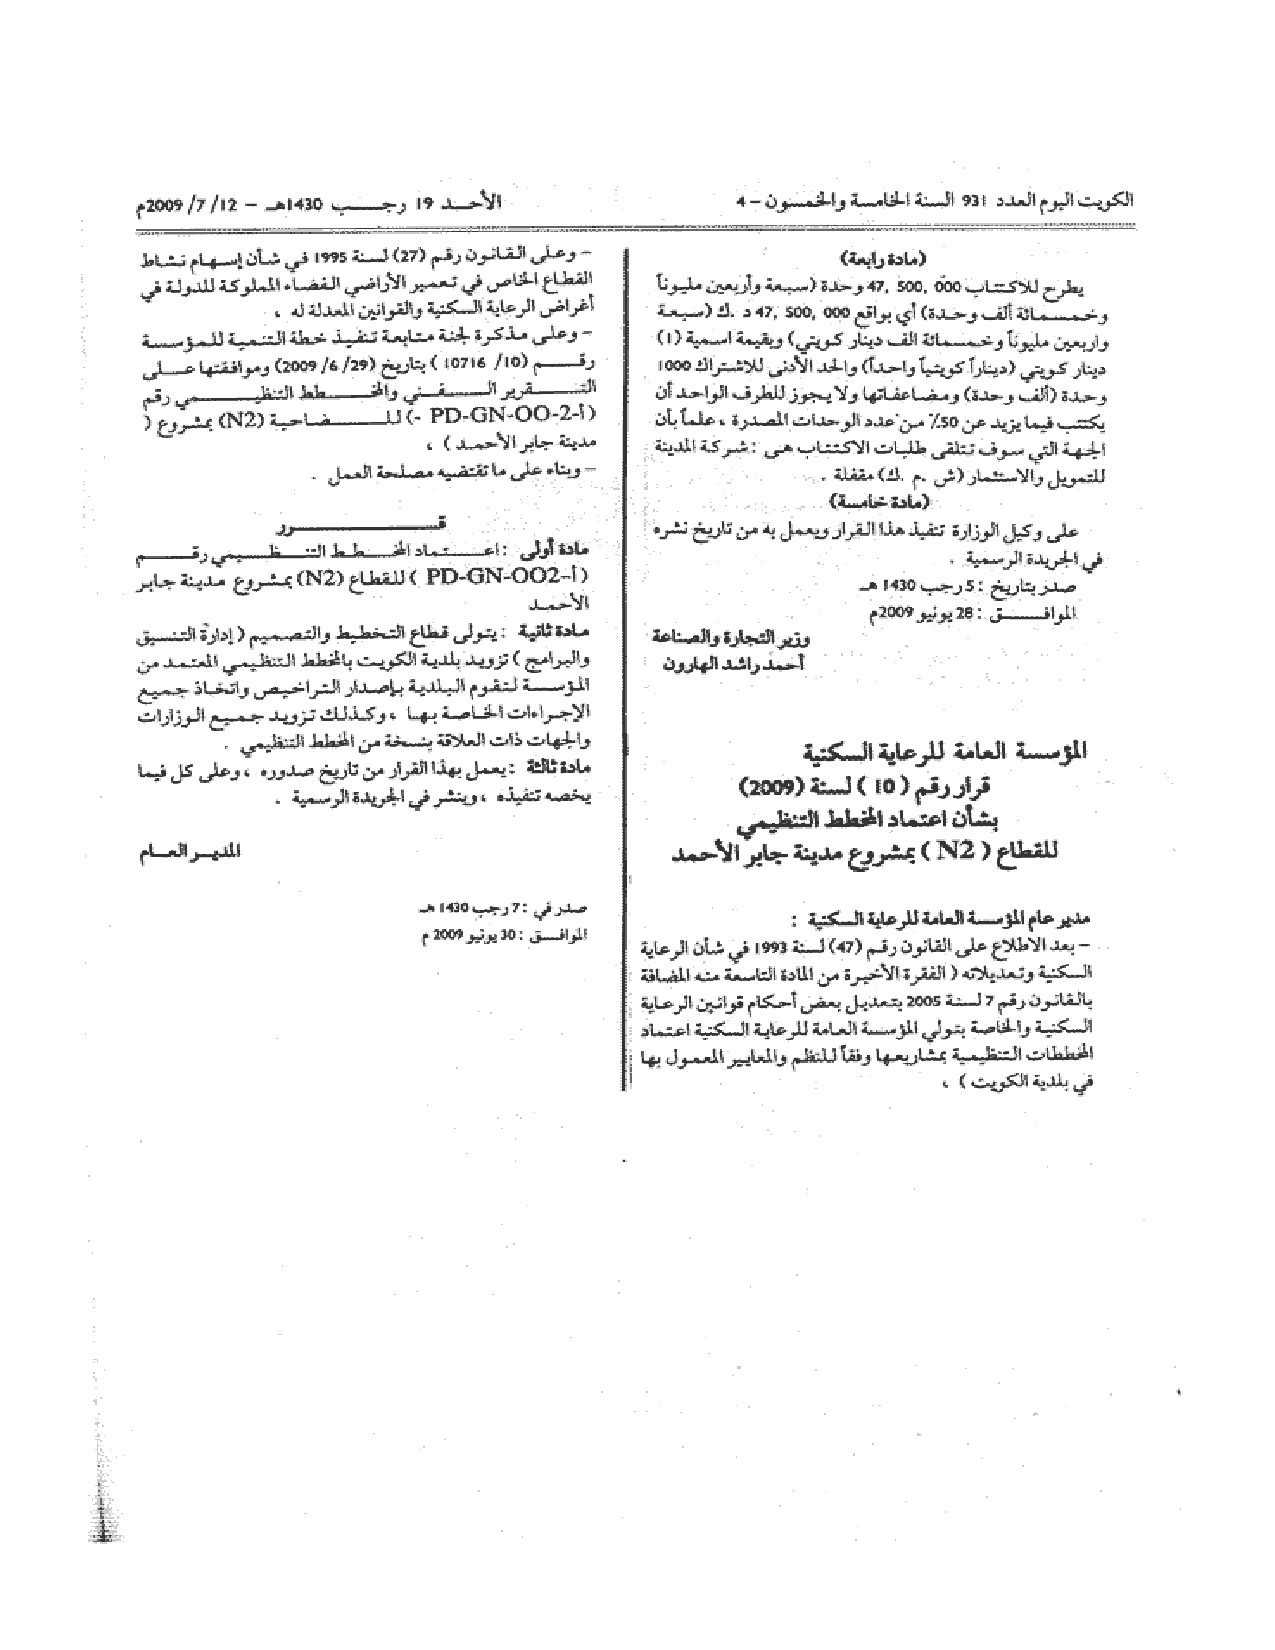 الكويت اليوم العدد 931 السنة الخامسة والخمسون - 4
الأحد 19 رجب 1430هـ - 12/ 7/ 2009م
(مادة رابعة)
يطرح للاكتتاب 47, 500, 000 وحدة (سبعة وأربعين مليوناً
وخمسمائة ألف وحدة) أي بواقع 47, 500, 000 د .ك (سبعة
وأربعين مليوناً وخمسمائة الف دينار كويتي) وبقيمة اسمية (1)
دينار كويتي (ديناراً كويتياً واحداً) والحد الأدنى للاشتراك 1000
وحدة (ألف وحدة) ومضاعفاتها ولا يجوز للطرف الواحد أن
يكتتب فيما يزيد عن 50٪ من عدد الوحدات المصدرة ، علماً بأن
الجهة التي سوف تتلقى طلبات الاكتتاب هي : شركة المدينة
للتمويل والاستثمار (ش .م .ك) مقفلة .
(مادة خامسة)
على وكيل الوزارة تنفيذ هذا القرار ويعمل به من تاريخ نشره
في الجريدة الرسمية .
صدر بتاريخ : 5 رجب 1430 هـ
الموافــــق : 28 يونيو 2009م
وزير التجارة والصناعة
أحمد راشد الهارون
المؤسسة العامة للرعاية السكنية
قرار رقم ( 10 ) لسنة (2009)
بشأن اعتماد المخطط التنظيمي
للقطاع ( N2 ) بمشروع مدينة جابر الأحمد
مدير عام المؤسسة العامة للرعاية السكنية :
- بعد الاطلاع على القانون رقم (47) لسنة 1993 في شأن الرعاية
السكنية وتعديلاته ( الفقرة الأخيرة من المادة التاسعة منه المضافة
بالقانون رقم 7 لسنة 2005 بتعديل بعض أحكام قوانين الرعاية
السكنية والخاصة بتولي المؤسسة العامة للرعاية السكنية اعتماد
المخططات التنظيمية بمشاريعها وفقاً للنظم والمعايير المعمول بها
في بلدية الكويت ) ،
- وعلى القانون رقم (27) لسنة 1995 في شأن إسهام نشاط
القطاع الخاص في تعمير الأراضي الفضاء المملوكة للدولة في
أغراض الرعاية السكنية والقوانين المعدلة له ،
- وعلى مذكرة لجنة متابعة تنفيذ خطة التنمية للمؤسسة
رقــم (10/ 10716 ) بتاريخ (29/ 6/ 2009) وموافقتها على
التـــقرير الــــفــني والمخــــطط التنظــــيمي رقم
(أ-2-PD-GN-OO -) للـــضاحية (N2) بمشروع (
مدينة جابر الأحمد ) ،
- وبناء على ما تقتضيه مصلحة العمل .
قــــــــــرر
مادة أولى : اعــتماد المخــطط التنــظــيمي رقــــم
(أ-PD-GN-OO2 ) للقطاع (N2) بمشروع مدينة جابر
الأحمد
مادة ثانية : يتولى قطاع التخطيط والتصميم ( إدارة التنسيق
والبرامج ) تزويد بلدية الكويت بالمخطط التنظيمي المعتمد من
المؤسسة لتقوم البلدية بإصدار التراخيص واتخاذ جميع
الاجراءات الخاصة بها ، وكذلك تزويد جميع الوزارات
والجهات ذات العلاقة بنسخة من المخطط التنظيمي .
مادة ثالثة : يعمل بهذا القرار من تاريخ صدوره ، وعلى كل فيما
يخصه تنفيذه ، وينشر في الجريدة الرسمية .
المديــر العــام
صدر في : 7 رجب 1430 هـ
الموافـــق : 30 يونيو 2009 م